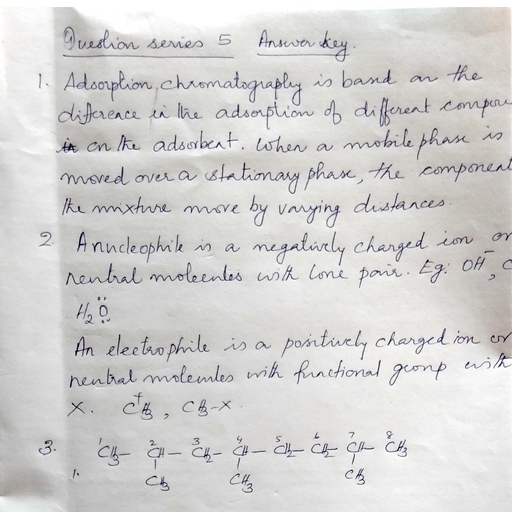 Question series 5 Answer key.
1. Adsorption chromatography is based on the
difference in the adsorption of different compou
in on the adsorbent. When a mobile phase is
moved over a stationary phase, the component
the mixture move by varying distances.
2. A nucleophile is a negatively charged ion or
neutral molecules with lone pair. Eg: OH⁻, C
H₂Ö
An electrophile is a positively charged ion or
neutral molecules with functional group with
X. C⁺H₃, CH₃-X.
3. ¹CH₃- ²CH- ³CH₂- ⁴CH- ⁵CH₂- ⁶CH₂- ⁷CH- ⁸CH₃
1. CH₃ CH₃ CH₃